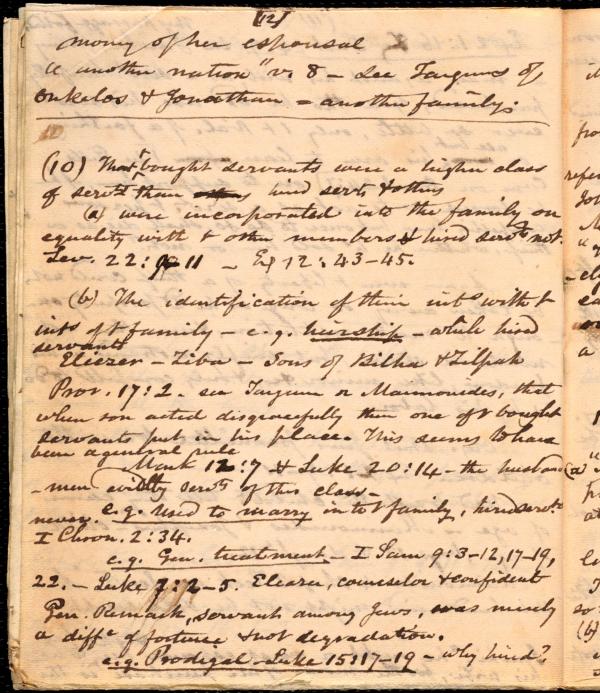 [12]
mony of her espousal
"a another nation" v. 8 – See Targums of
Onkelos & Jonathan = another family.
(10) That bought servants were a higher class
of servts than hired servts & others
(a) were incorporated into the family on
equality with t other members & hired servts not.
Lev. 22: 11 – Ex 12: 43–45.
(b) The identification of their ints with t
ints of t family – e.g. heirship – while hired
servants
Eliezer – Ziba – Sons of Bilha & Zilpah
Prov. 17:2. see Targum or Maimonides, that
when son acted disgracefully then one of t bought
servants put in his place. This seems to have
been a general rule
Mark 12:7 & Luke 20:14 – the husband
-men evidtly servts of this class –
e.g. used to marry into t family, hired servts
never.
I Chron. 2:34.
e.g. Gen. treatment – I Sam 9:3–12, 17–19,
22. – Luke 7:2–5. Eleazer, counselor & confident
Gen. Remark, servants among Jews, was merely
a diffce of fortune & not degradation.
e.g. Prodigal Luke 15:17–19 – why hired?